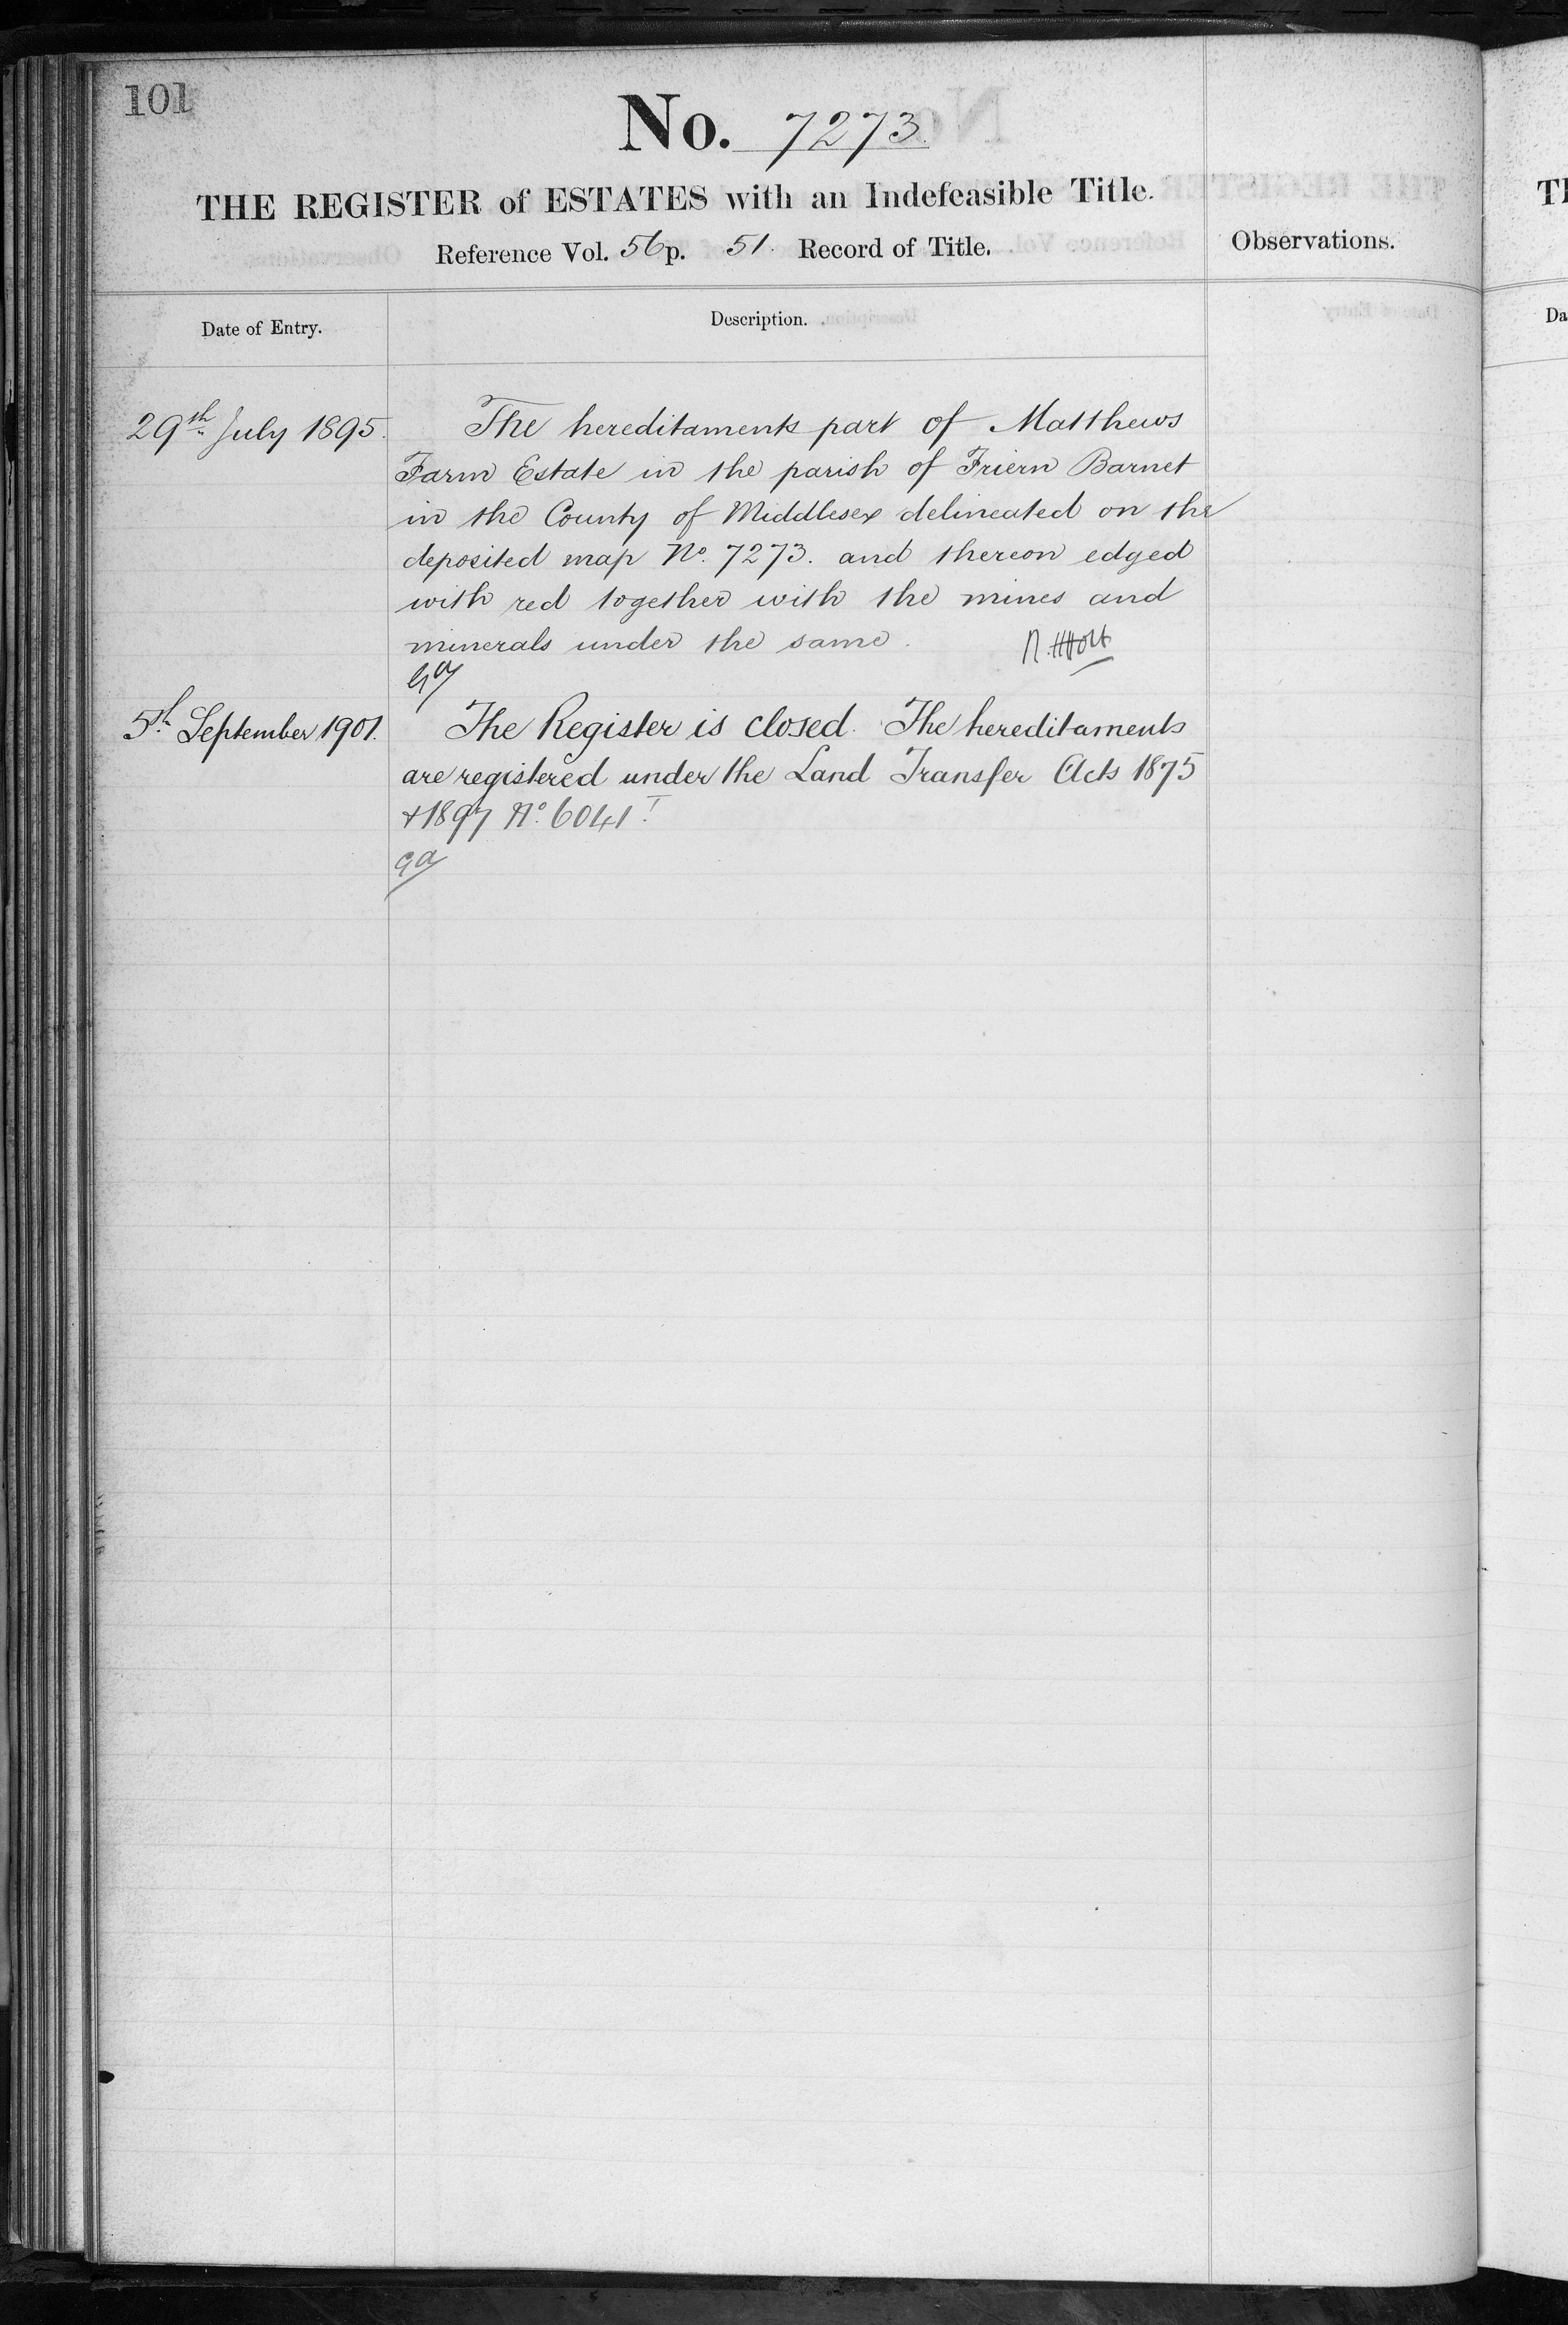 101
No. 7273.
THE REGISTER of ESTATES with an Indefeasible Title.
Reference Vol. 56 p. 51. Record of Title.
Observations.
Date of Entry.
Description.
29th July 1895.
The hereditaments part of Matthews
Farm Estate in the parish of Friern Barnet
in the County of Middlesex delineated on the
deposited map No. 7273. and thereon edged
with red together with the mines and
minerals under the same.
5th September 1901.
The Register is closed. The hereditaments
are registered under the Land Transfer Acts 1875
+ 1897 No. 6041